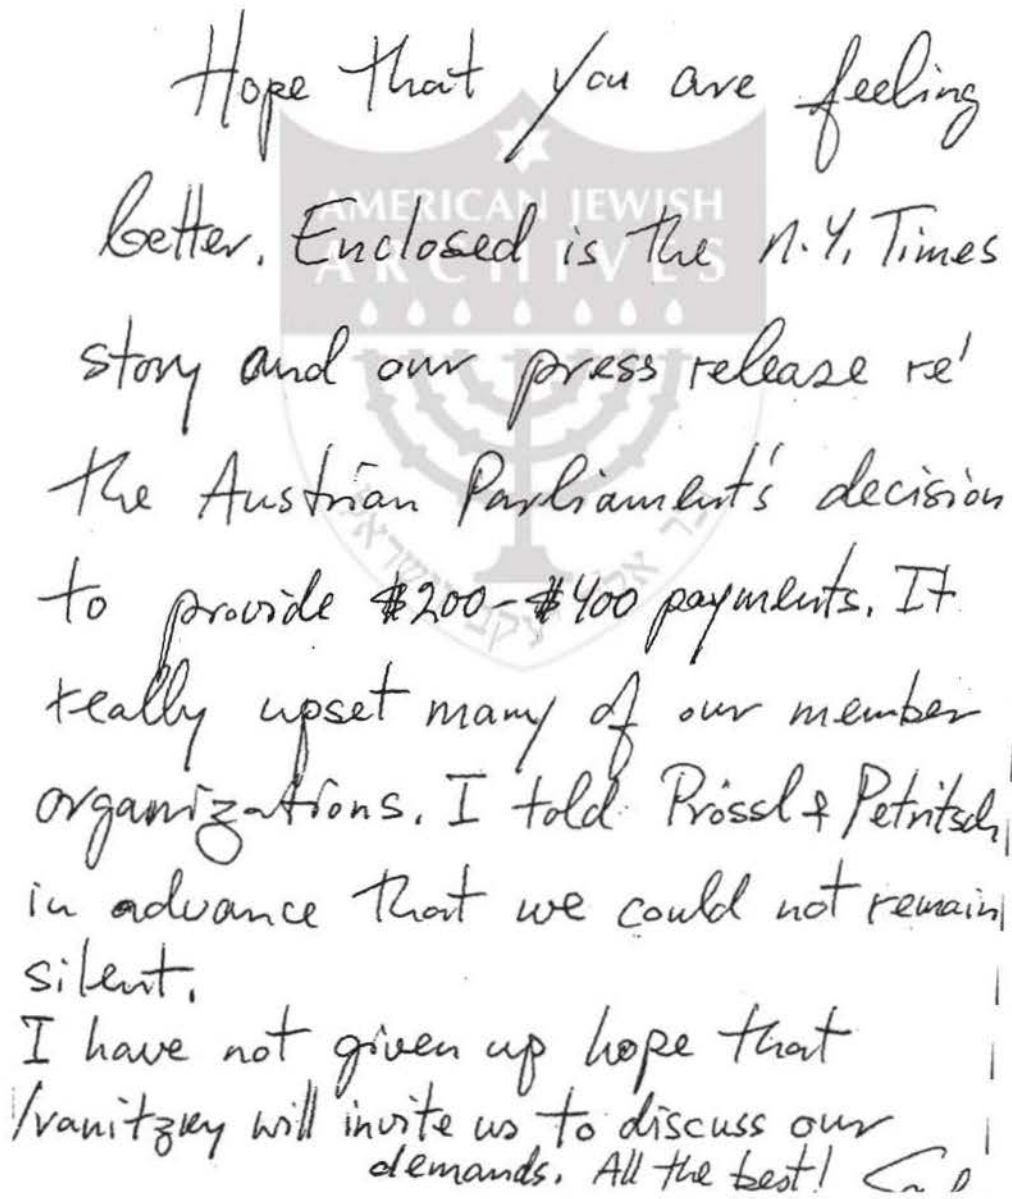 Hope that you are feeling
better. Enclosed is the N.Y. Times
story and our press release re'
the Austrian Parliament's decision
to provide $200-$400 payments. It
really upset many of our member
organizations. I told Prössl & Petritsch
in advance that we could not remain
silent.
I have not given up hope that
Vranitzky will invite us to discuss our
demands. All the best!
AMERICAN JEWISH
ARCHIVES